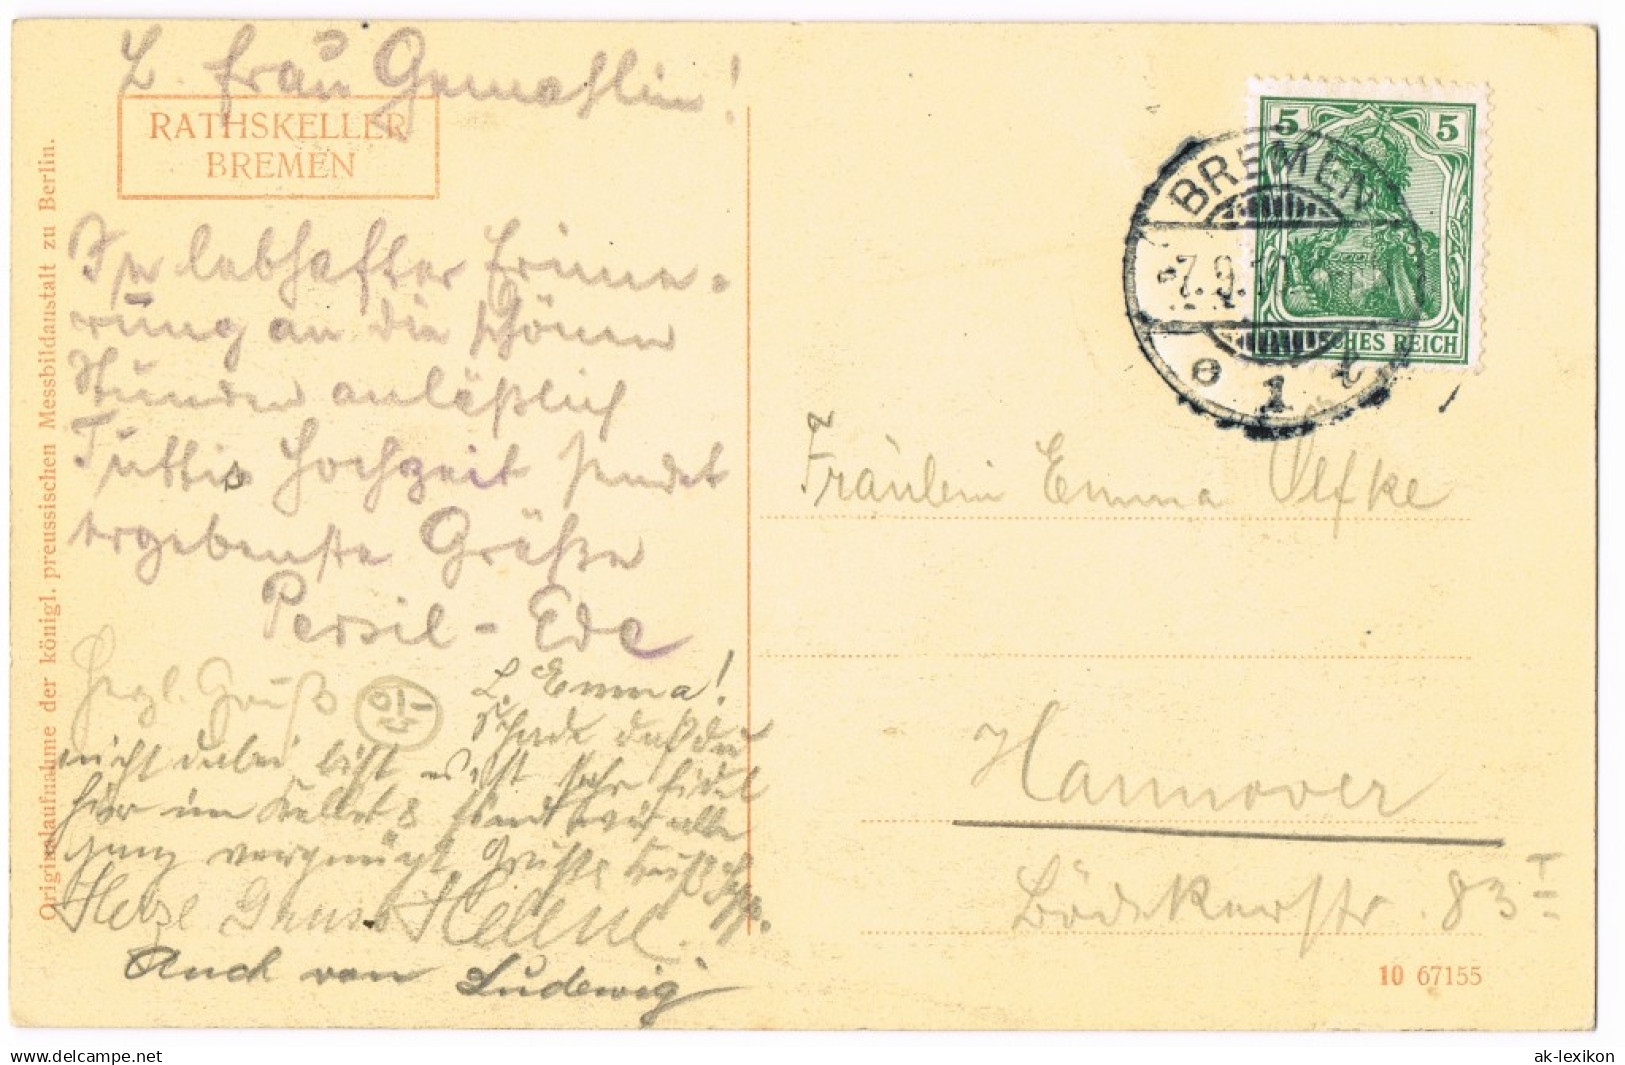 L. Frau Gemahlin!
RATHSKELLER
BREMEN
In lebhafter Erinne-
rung an die schönen
Stunden anläßlich
Tuttis Hochzeit sendet
ergebenste Grüße
Persil-Ede
Herzl. Gruß
L. Emma!
Schade daß du
nicht dabei bist es ist sehr fidel
hier im Keller & sind wir alle
ganz vergnügt Grüße
Helene
Auch von Ludewig
Originalaufnahme der königl. preussischen Messbildanstalt zu Berlin.
5 5
DEUTSCHES REICH
BREMEN
7.9.10
1
Fräulein Emma Olfke
Hannover
Bödekerstr. 83 I
10 67155
www.delcampe.net
ak-lexikon